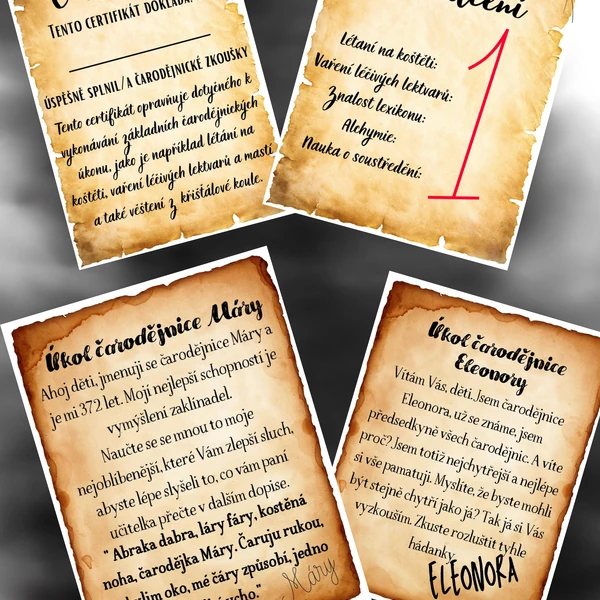 Tento certifikát dokládá,
úspěšně splnil/a čarodějnické zkoušky
Tento certifikát opravňuje dotyčného k
vykonávání základních čarodějnických
úkonu, jako je například létání na
koštěti, vaření léčivých lektvarů a mastí
a také věštění z křišťálové koule.
Létaní na koštěti:
Vaření léčivých lektvarů:
Znalost lexikonu:
Alchymie:
Nauka o soustředění:
1
Úkol čarodějnice Máry
Ahoj děti, jmenuji se čarodějnice Máry a
je mi 372 let. Mojí nejlepší schopností je
vymýšlení zaklínadel.
Naučte se se mnou to moje
nejoblíbenější, které Vám zlepší sluch,
abyste lépe slyšeli to, co vám paní
učitelka přečte v dalším dopise.
" Abraka dabra, láry fáry, kostěná
noha, čarodějka Máry. Čaruju rukou,
oko, mé čáry způsobí, jedno
Máry
Úkol čarodějnice
Eleonory
Vítám Vás, děti. Jsem čarodějnice
Eleonora, už se známe, jsem
předsedkyně všech čarodějnic. A víte
proč? Jsem totiž nejchytřejší a nejlépe
si vše pamatuji. Myslíte, že byste mohli
být stejně chytří jako já? Tak já si Vás
vyzkouším. Zkuste rozluštit tyhle
hádanky.
ELEONORA